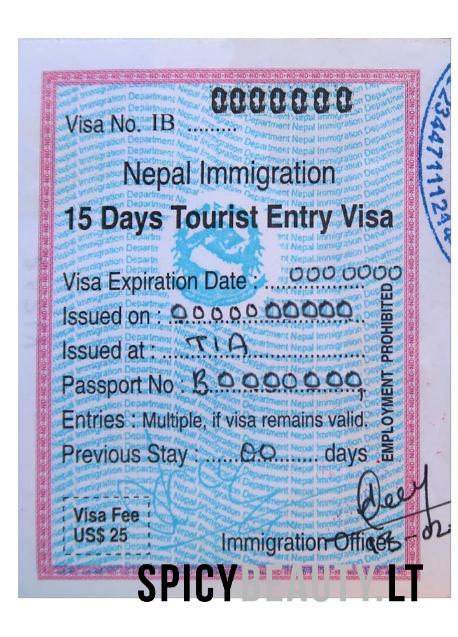 0000000
Visa No. IB .........
Nepal Immigration
15 Days Tourist Entry Visa
Visa Expiration Date : ...000 0000
Issued on : 00000 00000
Issued at : TIA
Passport No : B 0000000
Entries : Multiple, if visa remains valid.
Previous Stay : ......00........ days
EMPLOYMENT PROHIBITED
Visa Fee
US$ 25
Immigration Officer
SPICYBEAUTY.LT